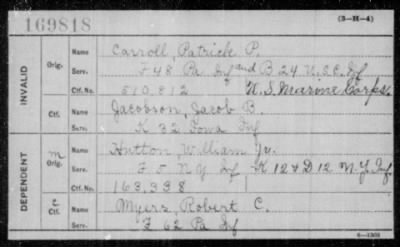 169818
(3-H-4)
INVALID
Orig.
Name Carroll, Patrick P.
Serv. F 48 Pa Inf and B 24 U.S.C. Inf
Ctf. No. 510,812 U.S. Marine Corps.
Ctf.
Name Jacobson, Jacob B.
Serv. K 32 Iowa Inf
DEPENDENT
m
Orig.
Name Hutton, William Jr.
Serv. F 5 N Y Inf K 12 & D 12 N.Y. Inf.
Ctf. No. 163,338
Ctf.
Name Myers, Robert C.
Serv. F 62 Pa Inf